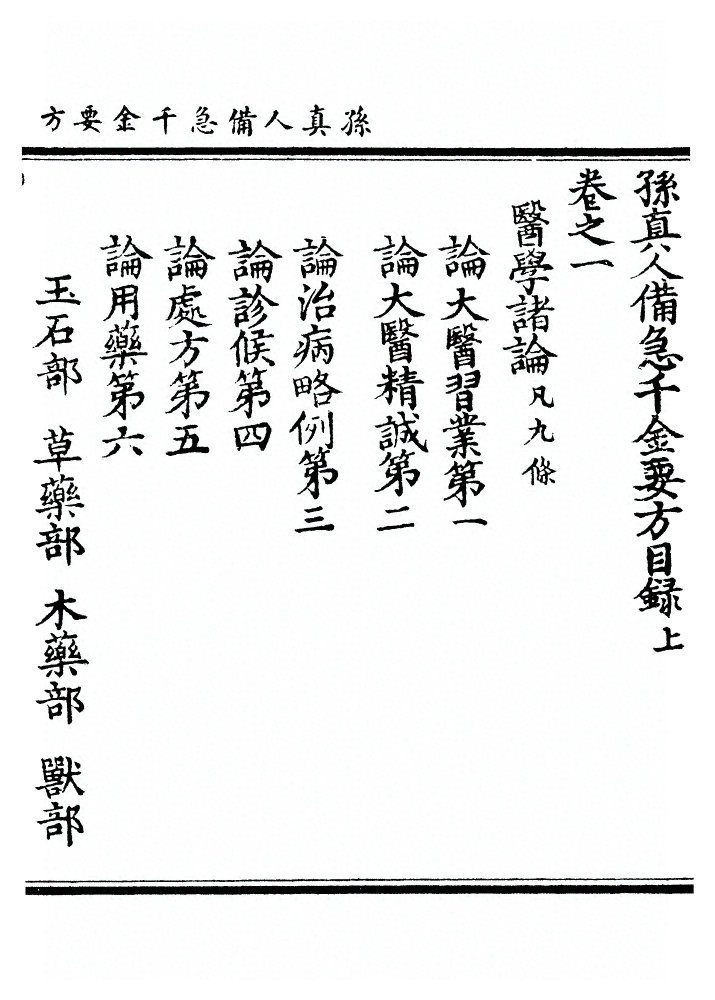 孫真人備急千金要方
孫真人備急千金要方目録上
卷之一
醫學諸論凡九條
論大醫習業第一
論大醫精誠第二
論治病略例第三
論診候第四
論處方第五
論用藥第六
玉石部 草藥部 木藥部 獸部